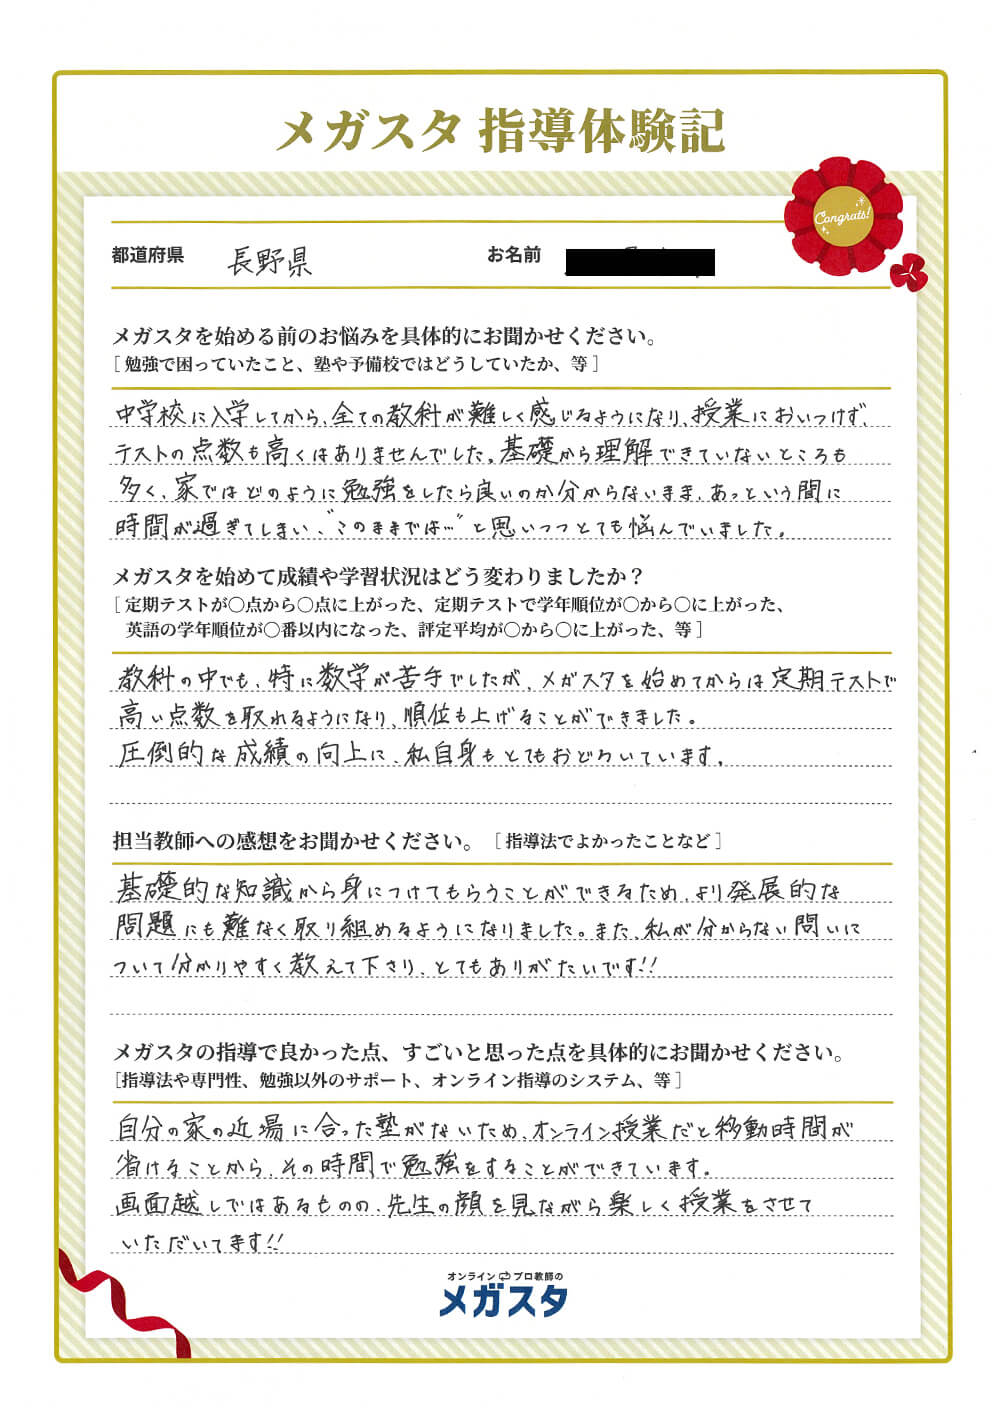 メガスタ 指導体験記
Congrats!
都道府県 長野県 お名前
メガスタを始める前のお悩みを具体的にお聞かせください。
[ 勉強で困っていたこと、塾や予備校ではどうしていたか、等 ]
中学校に入学してから、全ての教科が難しく感じるようになり、授業においつけず、
テストの点数も高くはありませんでした。基礎から理解できていないところも
多く、家ではどのように勉強をしたら良いのか分からないまま、あっという間に
時間が過ぎてしまい、“このままでは…”と思いつつとても悩んでいました。
メガスタを始めて成績や学習状況はどう変わりましたか？
[ 定期テストが〇点から〇点に上がった、定期テストで学年順位が〇から〇に上がった、
英語の学年順位が〇番以内になった、評定平均が〇から〇に上がった、等 ]
教科の中でも、特に数学が苦手でしたが、メガスタを始めてからは定期テストで
高い点数を取れるようになり、順位も上げることができました。
圧倒的な成績の向上に、私自身もとてもおどろいています。
担当教師への感想をお聞かせください。 [ 指導法でよかったことなど ]
基礎的な知識から身につけてもらうことができるため、より発展的な
問題にも難なく取り組めるようになりました。また、私が分からない問いに
ついて分かりやすく教えて下さり、とてもありがたいです!!
メガスタの指導で良かった点、すごいと思った点を具体的にお聞かせください。
[指導法や専門性、勉強以外のサポート、オンライン指導のシステム、等 ]
自分の家の近場に合った塾がないため、オンライン授業だと移動時間が
省けることから、その時間で勉強をすることができています。
画面越しではあるものの、先生の顔を見ながら楽しく授業をさせて
いただいてます!!
オンライン プロ教師の
メガスタ